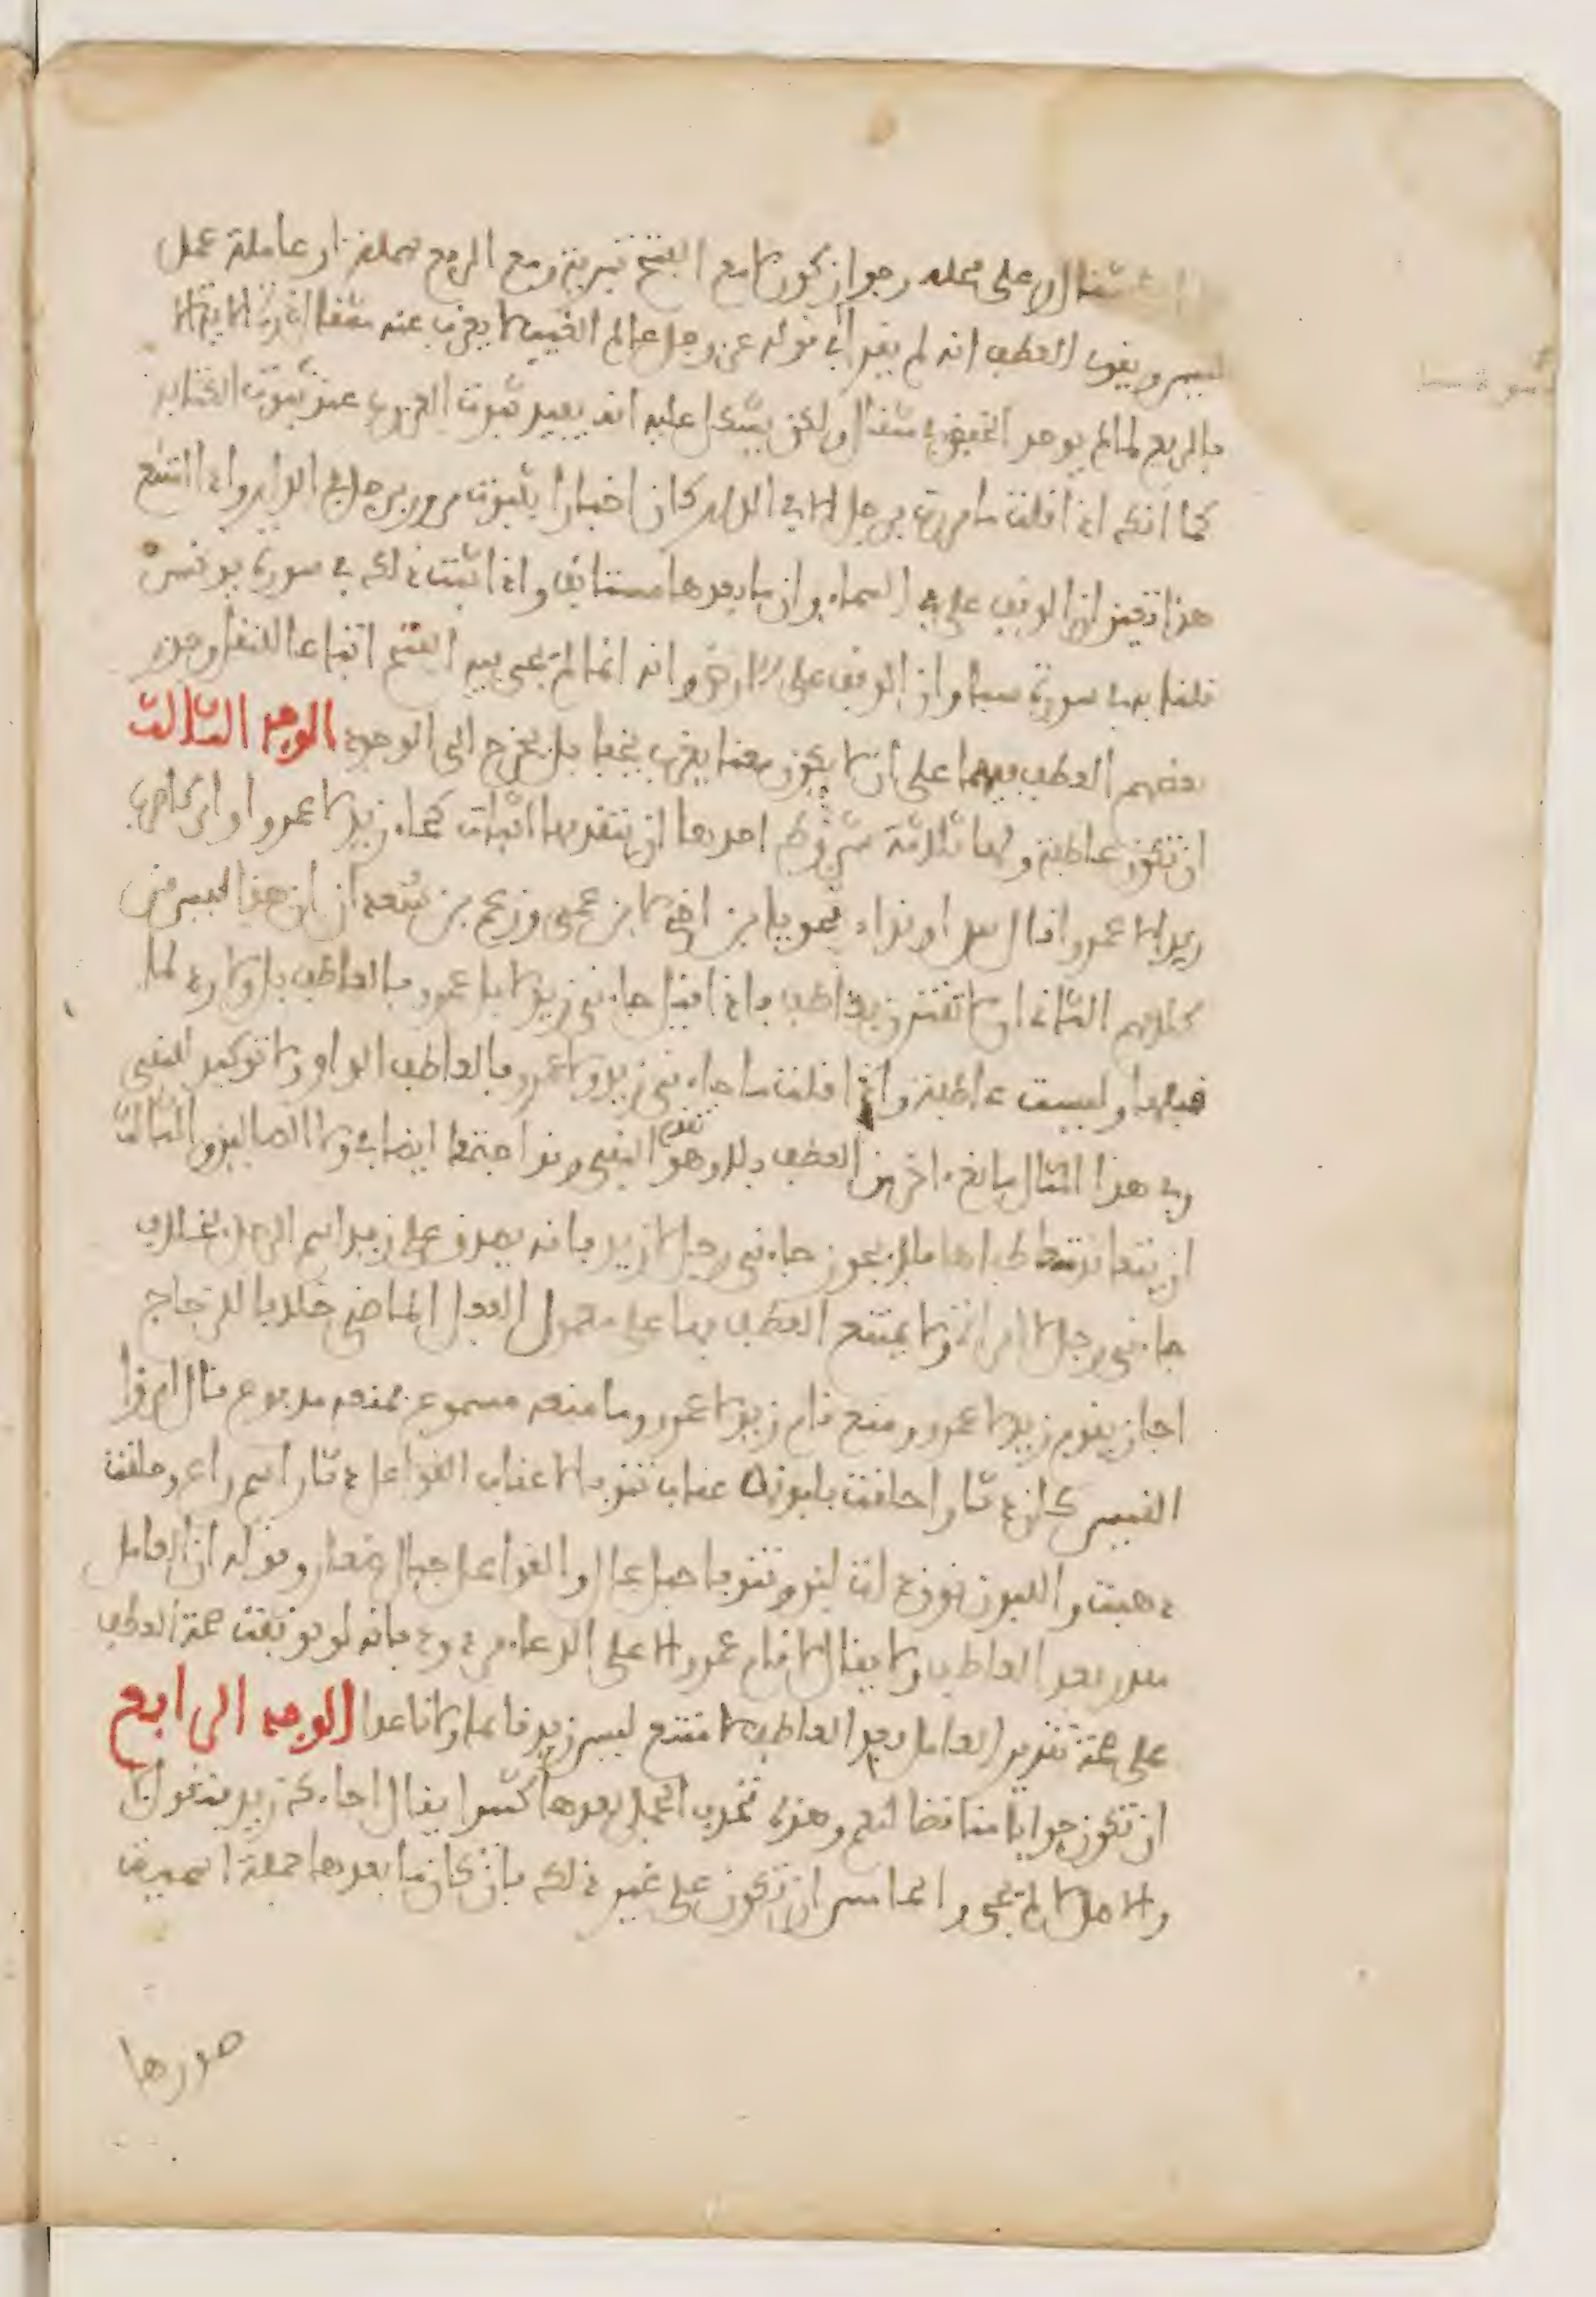 مثقال او على محله وجواز كون لا مع الفتح تبرية ومع الرفع مهملة او عاملة عمل
ليس ويقوى العطف انه لم يقرا في قوله عز وجل عالم الغيب لا يعزب عنه مثقال ذرة الاية الا
بالرفع لما لم يوجد الخفض في مثقال ولكن يشكل عليه انه يفيد ثبوت العزوب عند ثبوت الكتاب
كما انك اذا قلت ما مررت برجل الا في الدار كان اخبارا بثبوت مرورك برجل في الدار واذا امتنع
هذا تعين ان الوقف على في السماء وان ما بعدها مستانف واذا ثبت ذلك في سورة يونس
قلنا به في سورة سبا وان الوقف على الارض وانه انما لم يجى فيه الفتح اتباعا للنقل وجوز
بعضهم العطف فيهما على ان لا يكون معنا يعزب يخفا بل يخرج الى الوجود الوجه الثالث
ان تكون عاطفة ولها ثلاثة شروط احدها ان يتقدمها اثبات كجاء زيد لا عمروا او امر كاضرب
زيدا لا عمروا قال س او نداء نحو يا بن اخي لا ابن عمي وزعم بن سعدان ان هذا ليس من
كلامهم الثاني ان لا تقترن بعاطف فاذا قيل جاءني زيد لا بل عمرو فالعاطف بل ولا رد لما
قبلها وليست عاطفة واذا قلت ما جاءني زيد ولا عمرو فالعاطف الواو ولا توكيد للنفي
وفي هذا المثال مانع ءاخر من العطف بلا وهو تقدم النفي وقد اجتمعا ايضا في ولا الضالين والثالث
ان يتعاند متعاطفاها فلا يجوز جاءني رجل لا زيد فانه يصدق على زيد اسم الرجل بخلاف
جاءني رجل لا امراة ولا يمتنع العطف بها على معمول الفعل الماضي خلافا للزجاج
اجاز يقوم زيد لا عمرو ومنع قام زيد لا عمرو وما منعه مسموع فمنعه مدفوع قال امرؤا
القيس كان دثارا حلقت بلبونه عقاب تنوفا لا عقاب القواعل دثار اسم راع وحلقت
ذهبت واللبون نوق ذات لبن وتنوفا جبل عال والقواعل جبال صغار وقوله ان العامل
مقدر بعد العاطف ولا يقال لا قام عمرو الا على الدعاء مردود بانه لو توقفت صحة العطف
على صحة تقدير العامل بعد العاطف لامتنع ليس زيد قائما ولا قاعدا الوجه الرابع
ان تكون جوابا مناقضا لنعم وهذه تحذف الجمل بعدها كثيرا يقال اجاءك زيد فتقول لا
والاصل لا لم يجى والخامس ان تكون على غير ذلك فان كان ما بعدها جملة اسمية
صورها